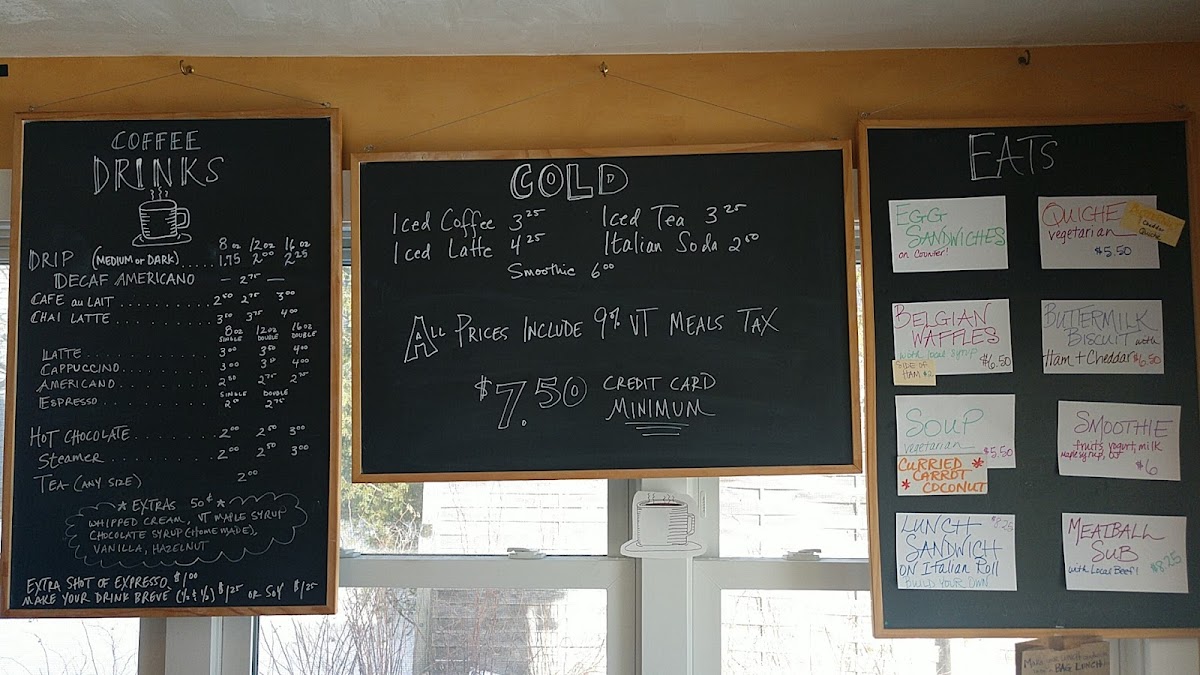 COFFEE
DRINKS
8 oz 12 oz 16 oz
DRIP (MEDIUM OR DARK)..... 1.75 2.00 2.25
DECAF AMERICANO — 2.75 —
CAFE au LAIT ............ 2.50 2.75 3.00
CHAI LATTE ............ 3.50 3.75 4.00
8 oz 12 oz 16 oz
SINGLE DOUBLE DOUBLE
LATTE ............ 3.00 3.50 4.00
CAPPUCCINO ............ 3.00 3.50 4.00
AMERICANO ............ 2.50 2.75 2.75
SINGLE DOUBLE
ESPRESSO ............ 2.75
HOT CHOCOLATE ............ 2.00 2.50 3.00
STEAMER ............ 2.00 2.50 3.00
TEA (ANY SIZE) 2.00
* EXTRAS 50¢ *
WHIPPED CREAM, VT MAPLE SYRUP
CHOCOLATE SYRUP (HOMEMADE),
VANILLA, HAZELNUT
EXTRA SHOT OF EXPRESSO $1.00
MAKE YOUR DRINK BREVE (½ & ½) $1.25 OR SOY $1.25
COLD
Iced Coffee 3.25 Iced Tea 3.25
Iced Latte 4.25 Italian Soda 2.50
Smoothie 6.00
ALL PRICES INCLUDE 9% VT MEALS TAX
$7.50 CREDIT CARD
MINIMUM
EATS
EGG
SANDWICHES
on counter!
QUICHE
vegetarian
$5.50
Cheddar
Quiche
BELGIAN
WAFFLES
with local syrup
$6.50
SIDE OF
HAM $2
BUTTERMILK
BISCUIT with
Ham + Cheddar $6.50
SOUP
vegetarian
$5.50
CURRIED *
* CARROT
COCONUT
SMOOTHIE
fruits, yogurt, milk
maple syrup, OJ
$6
LUNCH $8.25
SANDWICH
ON Italian Roll
BUILD YOUR OWN
MEATBALL
SUB
with Local Beef! $8.25
BAG LUNCH!